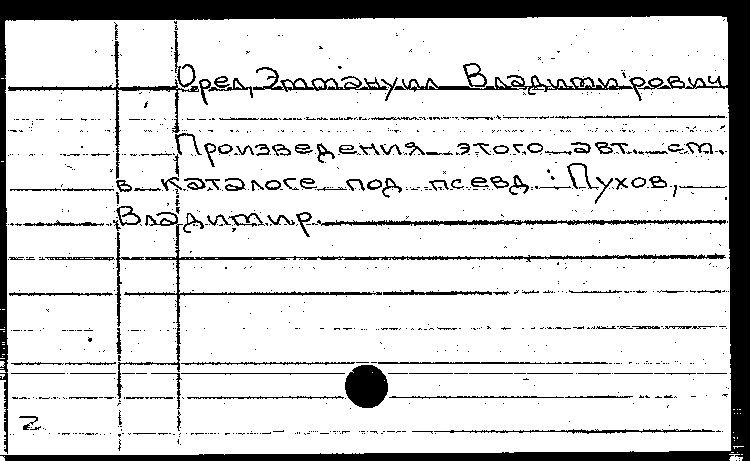 Орел, Эммануил Владимирович
Произведения этого авт. см.
в каталоге под псевд.: Пухов,
Владимир.
2